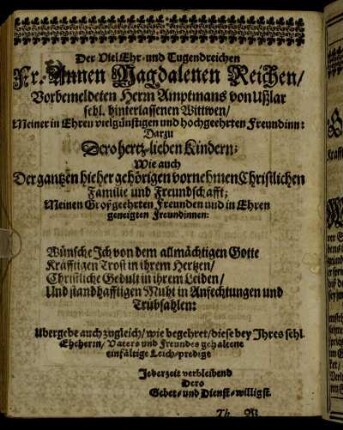 Der Viel Ehr- und Tugendreichen
Fr. Annen Magdalenen Reichen/
Vorbemeldeten Herrn Amptmans von Ußlar
sehl. hinterlassenen Wittwen/
Meiner in Ehren vielgünstigen und hochgeehrten Freundinn:
Darzu
Dero hertz-lieben Kindern;
Wie auch
Der gantzen hieher gehörigen vornehmen Christlichen
Familie und Freundschafft;
Meinen Großgeehrten Freunden und in Ehren
geneigten Freundinnen:
Wünsche Ich von dem allmächtigen Gotte
Kräfftigen Trost in ihrem Hertzen/
Christliche Gedult in ihrem Leiden/
Und standhafftigen Muht in Anfechtungen und
Trübsahlen:
Übergebe auch zugleich/ wie begehret/ diese bey Ihres sehl.
Eheherin/ Vaters und Freundes gehaltene
einfältige Leich-predigt
Jederzeit verbleibend
Dero
Gebet- und Dienst-willigst.
Th.